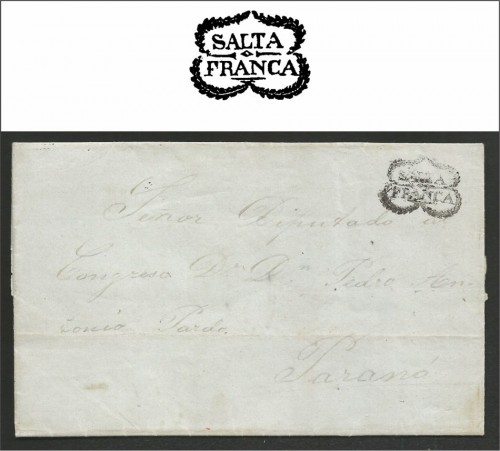 SALTA
FRANCA
SALTA
FRANCA
Señor Diputado a
Congreso Dr. Dn. Pedro An-
tonio Pardo
Paraná